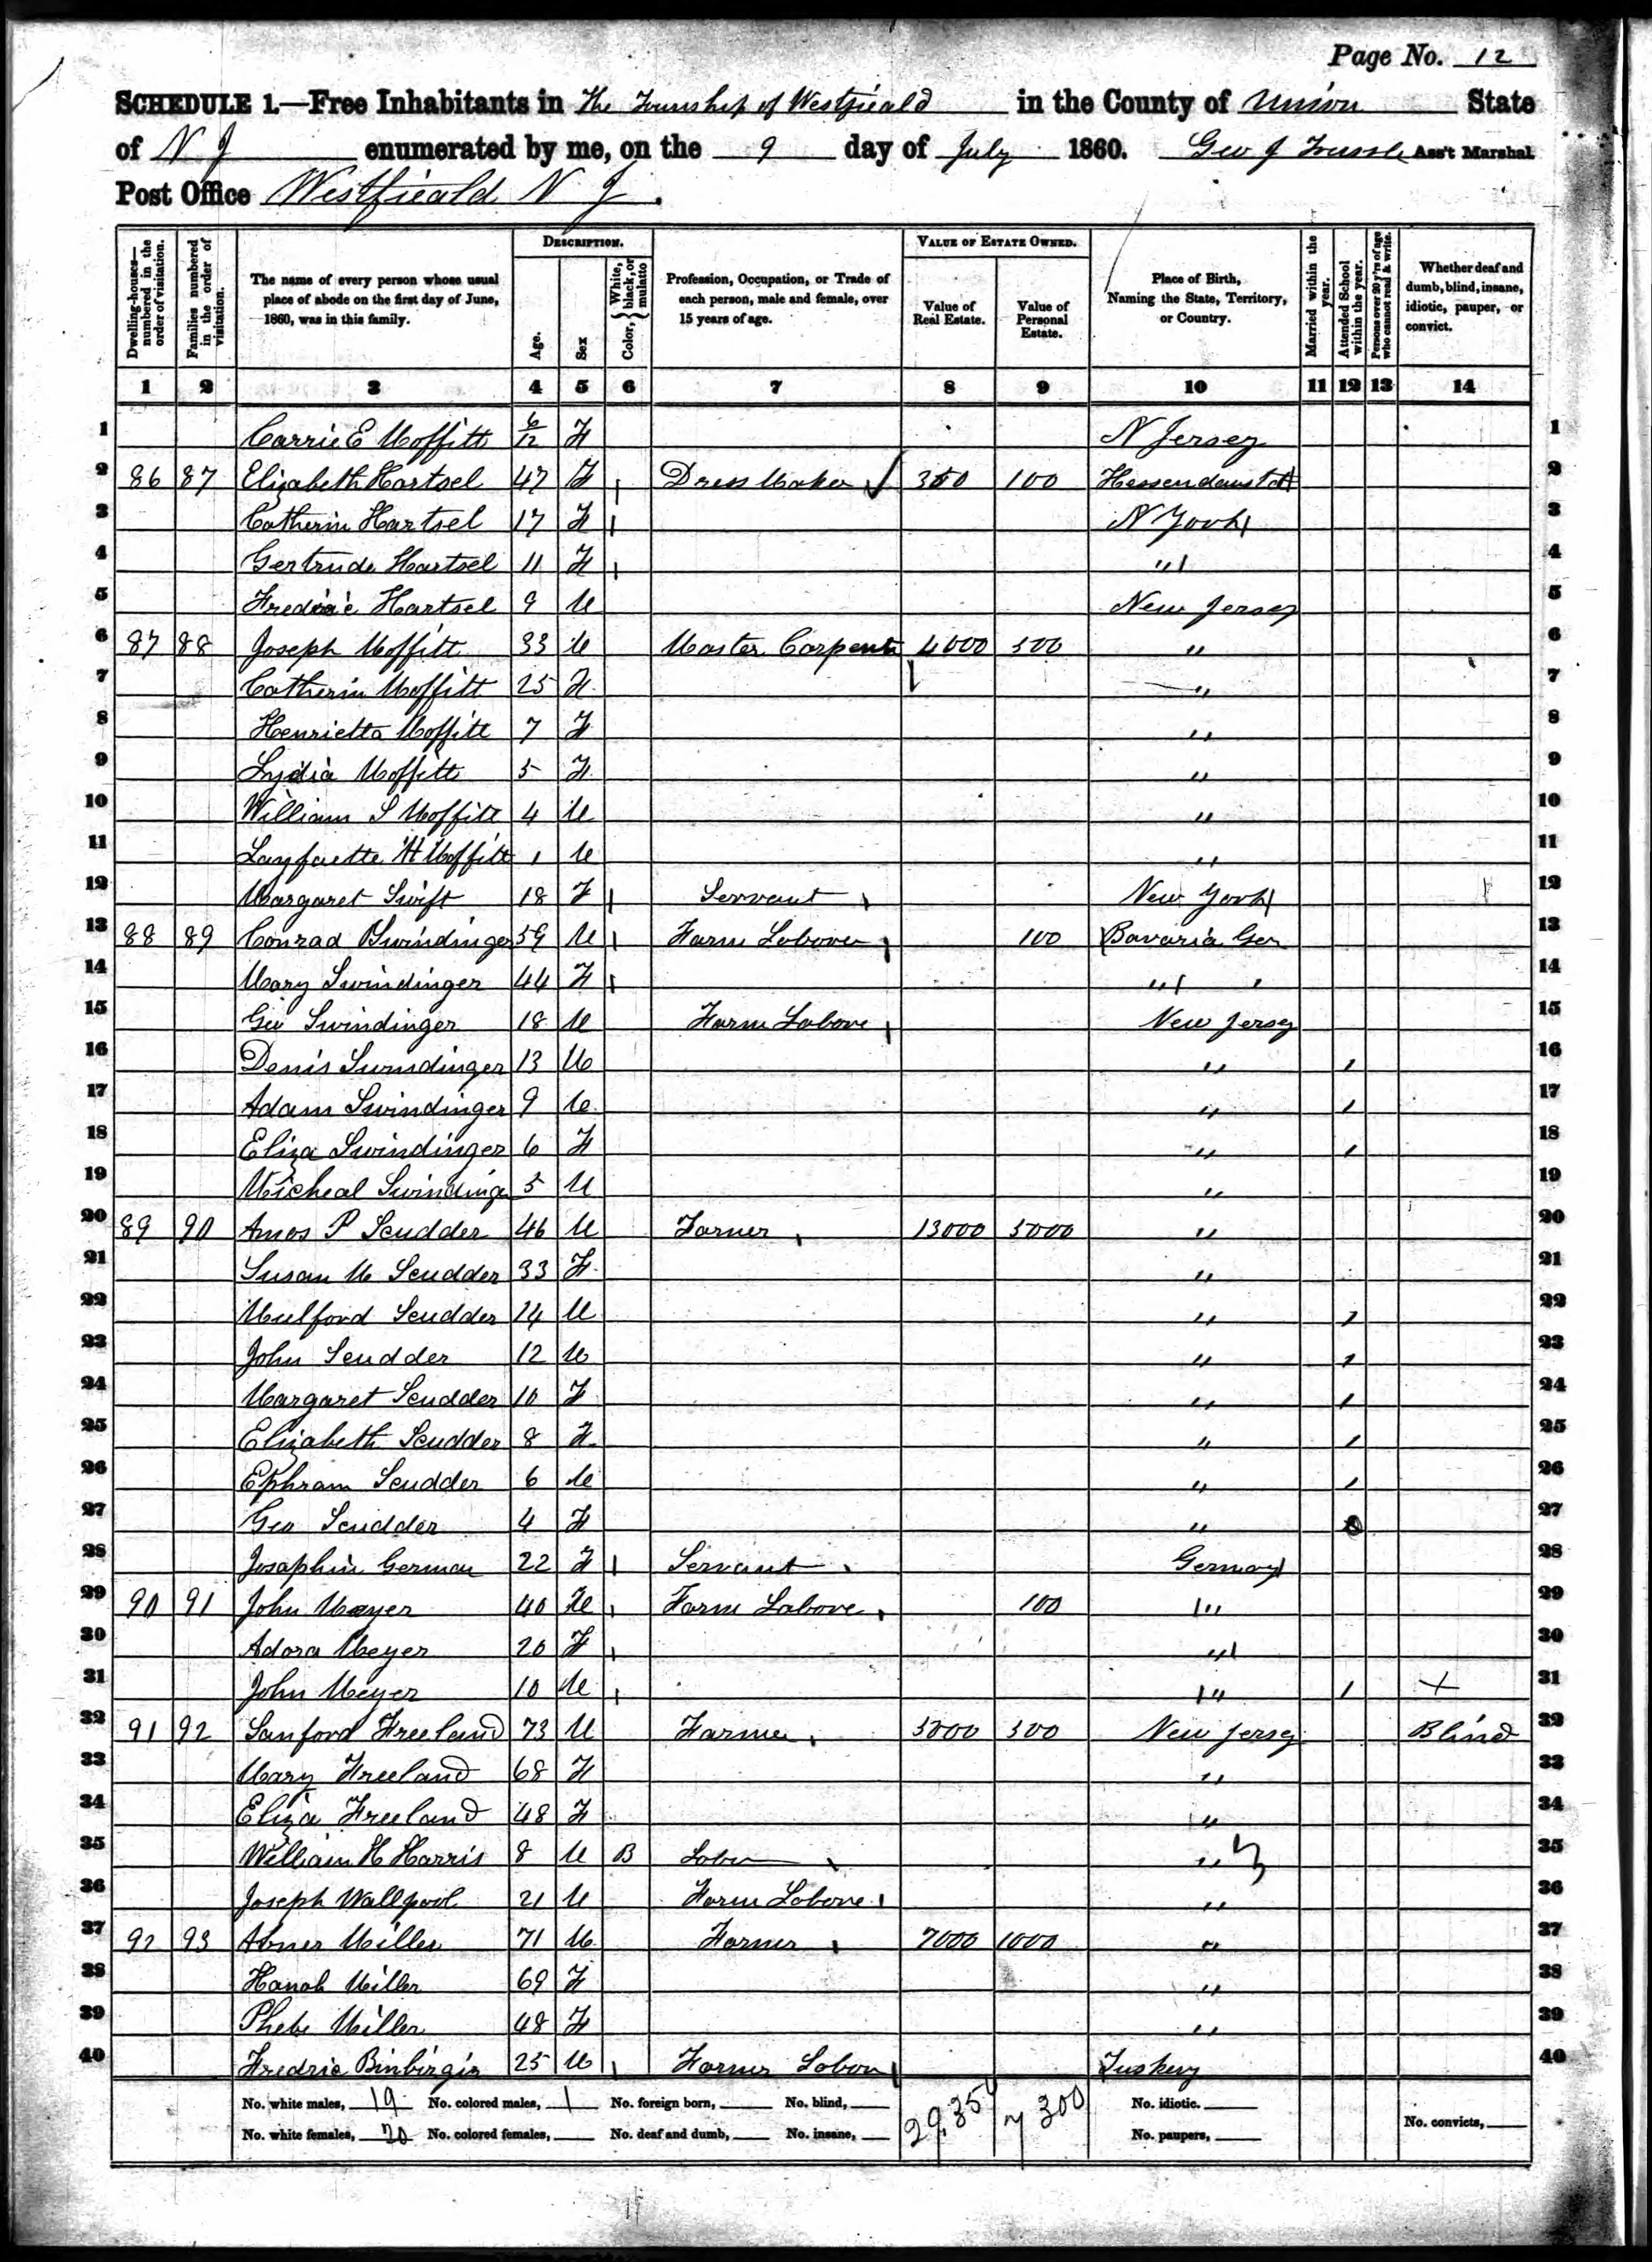 Page No. 12
SCHEDULE 1.—Free Inhabitants in The Township of Westfieald in the County of Union State
of N J enumerated by me, on the 9 day of July 1860. Geo J Ass't Marshal
Post Office Westfieald N J.
Dwelling-houses—numbered in the order of visitation.
Families numbered in the order of visitation.
The name of every person whose usual place of abode on the first day of June, 1860, was in this family.
DESCRIPTION.
Age.
Sex
Color, { White, black, or mulatto
Profession, Occupation, or Trade of each person, male and female, over 15 years of age.
VALUE OF ESTATE OWNED.
Value of Real Estate.
Value of Personal Estate.
Place of Birth, Naming the State, Territory, or Country.
Married within the year.
Attended School within the year.
Persons over 20 y'rs of age who cannot read & write.
Whether deaf and dumb, blind, insane, idiotic, pauper, or convict.
1 2 3 4 5 6 7 8 9 10 11 12 13 14
1 Carrie E Moffitt 6/12 F N Jersey 1
2 86 87 Elizabeth Hartsel 47 F Dress Maker 350 100 2
3 Catherin Hartsel 17 F N York 3
4 Gertrude Hartsel 11 F " 4
5 Fredric Hartsel 9 M New Jersey 5
6 87 88 Joseph Moffitt 33 M Master Carpent 4000 500 " 6
7 Catherin Moffitt 25 F " 7
8 Henrietta Moffitt 7 F " 8
9 Lydia Moffitt 5 F " 9
10 William S Moffitt 4 M " 10
11 Layfaette H Moffitt 1 M " 11
12 Margaret Swift 18 F Servant New York 12
13 88 89 Conrad Swindinger 59 M Farm Labover 100 Bavaria Ger 13
14 Mary Swindinger 44 F " " 14
15 Geo Swindinger 18 M Farm Labove New Jersey 15
16 Denis Swindinger 13 M " / 16
17 Adam Swindinger 9 M " / 17
18 Eliza Swindinger 6 F " / 18
19 Micheal Swindinge 5 M " 19
20 89 90 Amos P Scudder 46 M Farmer 13000 5000 " 20
21 Susan M Scudder 33 F " 21
22 Mulford Scudder 14 M " / 22
23 John Scudder 12 M " / 23
24 Margaret Scudder 10 F " / 24
25 Elizabeth Scudder 8 F " / 25
26 Ephram Scudder 6 M " / 26
27 Geo Scudder 4 F " 27
28 Josaphin German 22 F Servant Germay 28
29 90 91 John Meyer 40 M Farm Labove 100 " 29
30 Adora Meyer 20 F " 30
31 John Meyer 10 M " / + 31
32 91 92 Sanford Freeland 73 M Farme 5000 500 New Jersey Blind 32
33 Mary Freeland 68 F " 33
34 Eliza Freeland 48 F " 34
35 William H Harris 8 M B " 35
36 Joseph Wallpool 21 M Farm Labove " 36
37 92 93 Abner Miller 71 M Farmer 7000 1000 " 37
38 Hanah Miller 69 F " 38
39 Phebe Miller 48 F " 39
40 Fredric Binbirgin 25 M Farmer Labov 40
No. white males, 19 No. colored males, 1 No. foreign born, No. blind, 29,350 7300 No. idiotic. No. convicts,
No. white females, 20 No. colored females, No. deaf and dumb, No. insane, No. paupers,